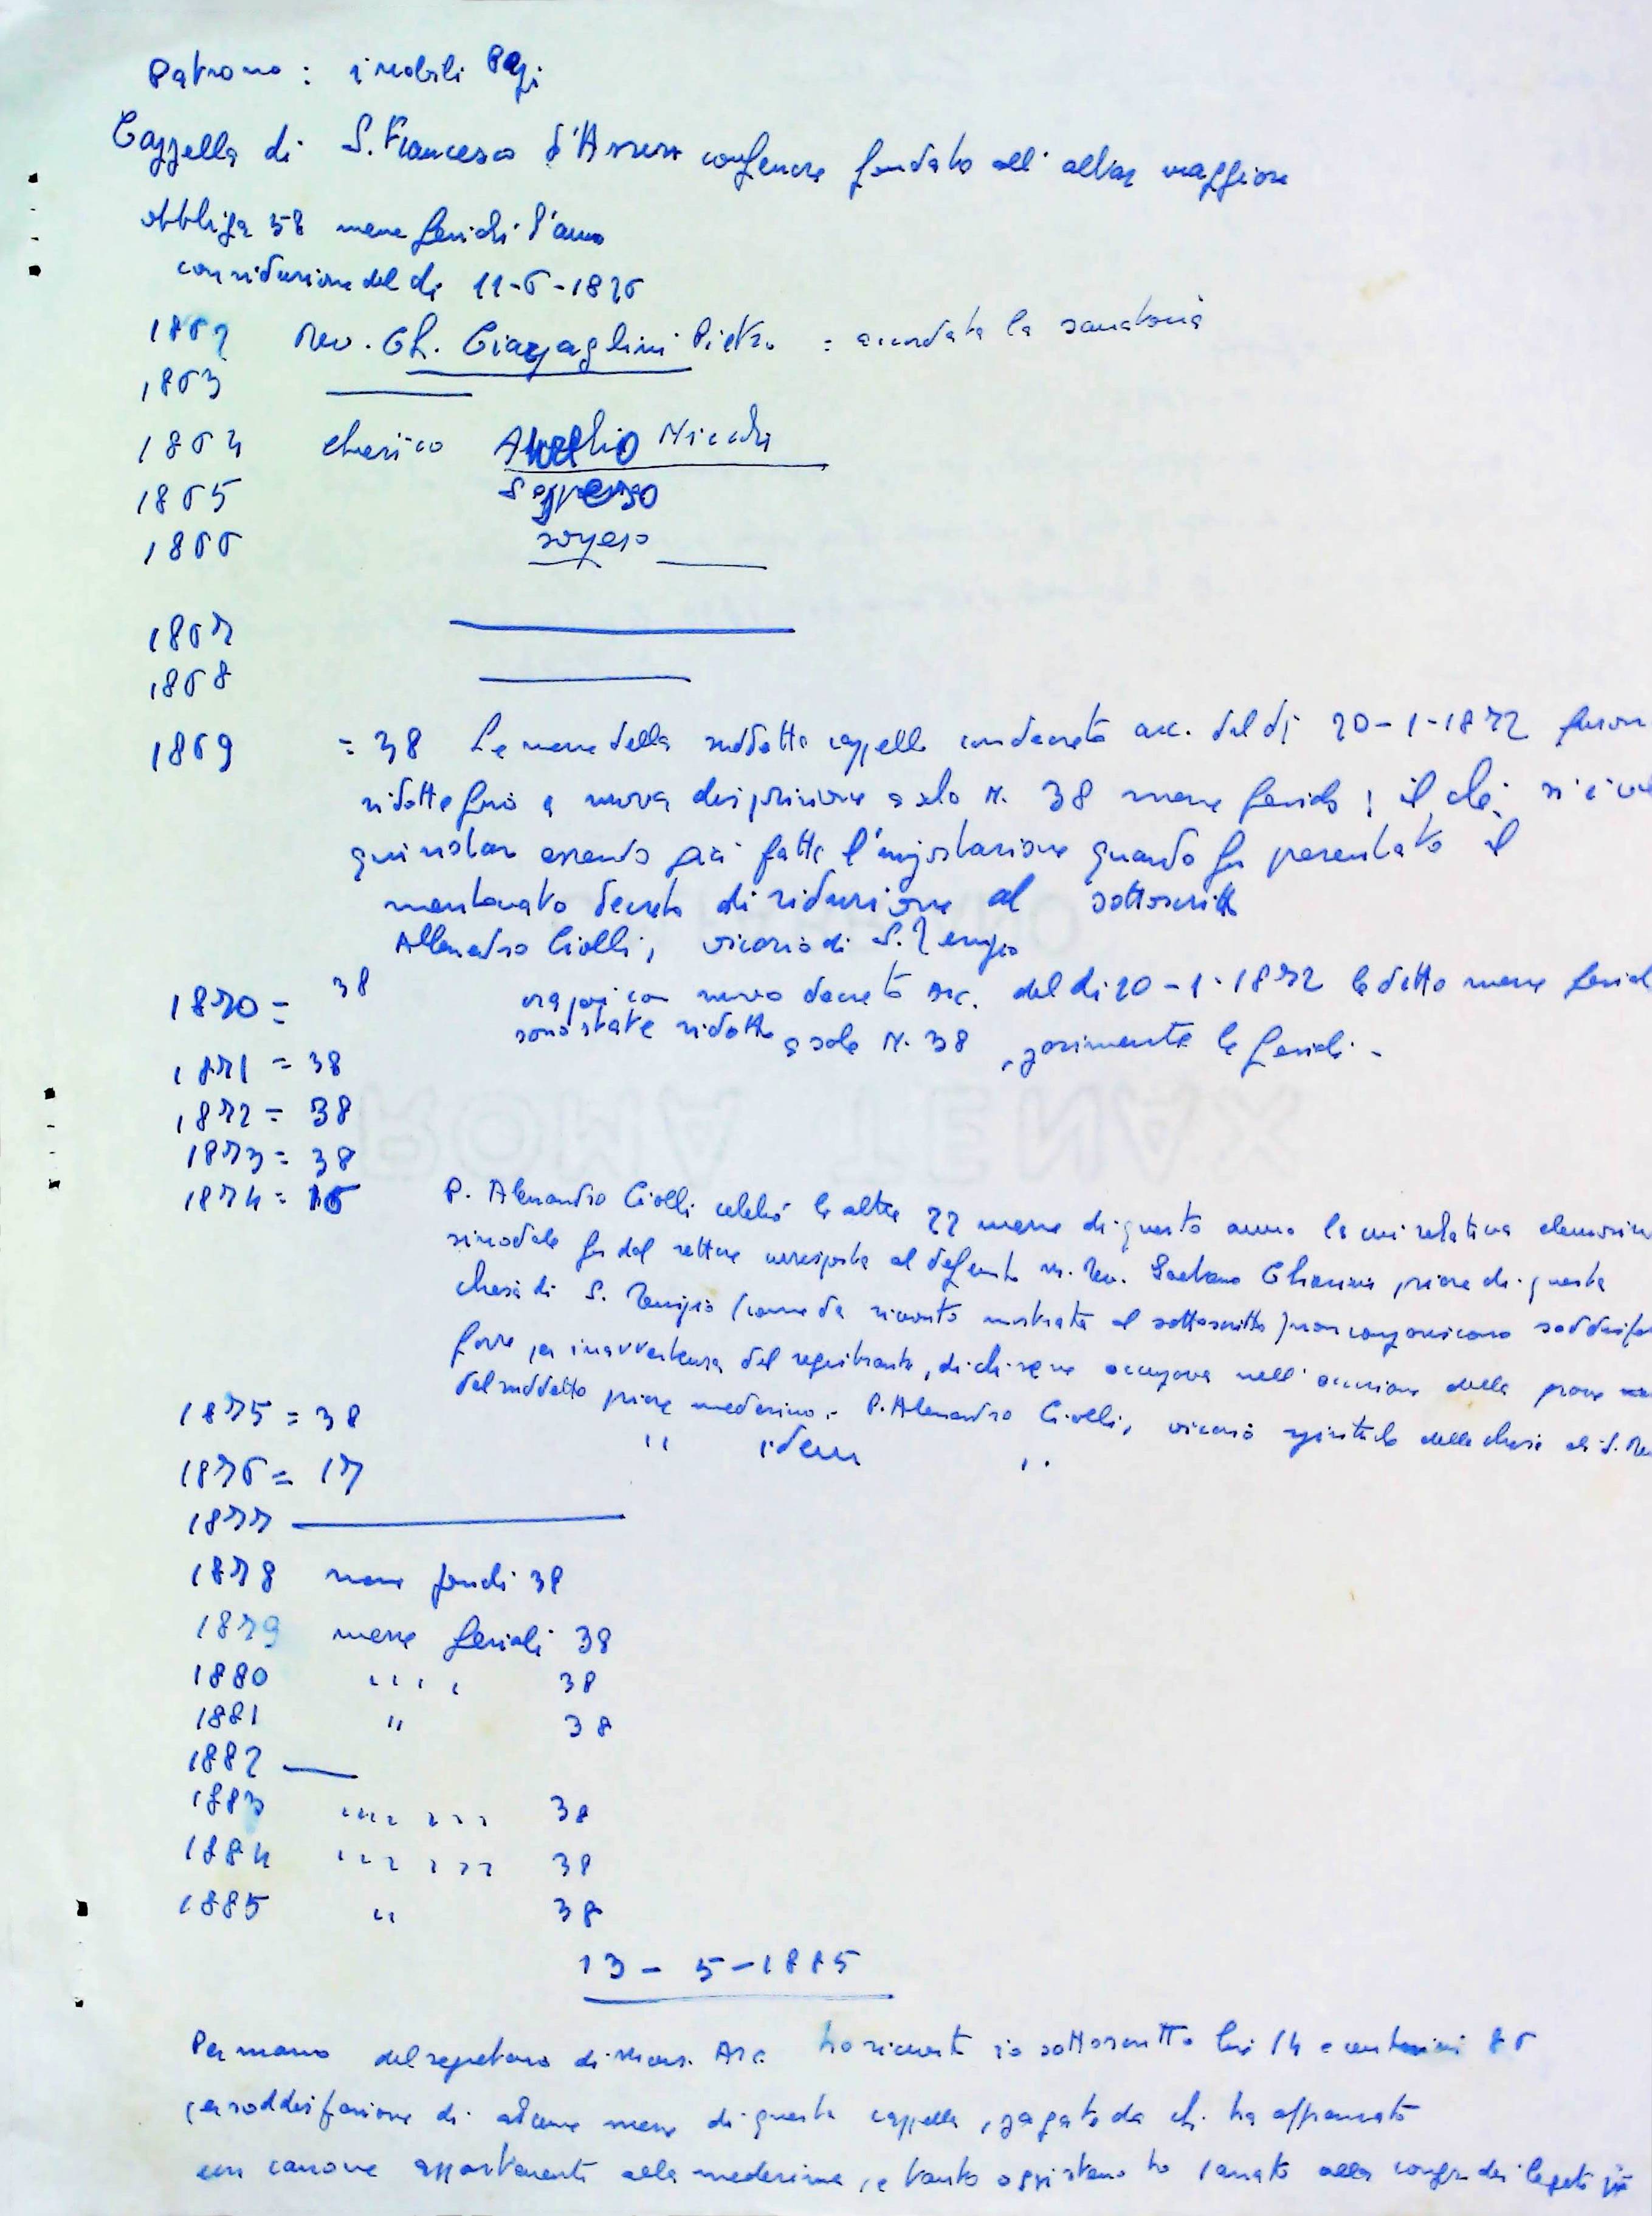 Patrono : i nobili Pazzi
Cappella di S. Francesco d'Assisi confessore fondato all' altar maggiore
obbliga 58 messe feriali l'anno
con riduzione del di 11-6-1826
1862 Rev. Ch. Ciappaglini Pietro = accordata la sanatoria
1863
1864 cherico Aurelio Nicchi
1865 Soppresso
1866 soppresso
1867
1868
1869 = 38 Le messe della suddetta cappella con decreto arc. del dì 20-1-1872 furon
ridotte fino a nuova disposizione a solo N. 38 messe feriali ; il che si
qui notare essendo già fatta l'impostazione quando fu presentato il
mentovato decreto di riduzione al sottoscritto
Alessandro Ciolli, vicario di S. Remigio
1870 = 38 ma poi con nuovo decreto arc. del di 20-1-1872 le dette messe
sono state ridotte a sole N. 38 , parimente le feriali.
1871 = 38
1872 = 38
1873 = 38
1874 = 16 P. Alessandro Ciolli celebrò le altre 22 messe di questo anno la cui relativa
sinodale fu dal rettore corrisposta al defunto M. Rev. Gaetano priore di questa
chiesa di S. Remigio (come da riscontro mostrato al sottoscritto) non compariscono
forse per inavvertenza del registrante, di chi se ne occupava nell' occasione della grave
del suddetto priore medesimo. P. Alessandro Ciolli, vicario spirituale della chiesa di S.
1875 = 38 " idem "
1876 = 17
1877
1878 messe feriali 38
1879 messe feriali 38
1880 " " 38
1881 " 38
1882
1883 " " 38
1884 " " 38
1885 " 38
13 - 5 - 1885
Per mano del segretario di Mons. Arc. ho ricevuto io sottoscritto lire 14 e centesimi 86
per soddisfazione di alcune messe di questa cappella , pagate da chi ha affrancato
un canone appartenente alla medesima , e tanto ho passato alla dei legati